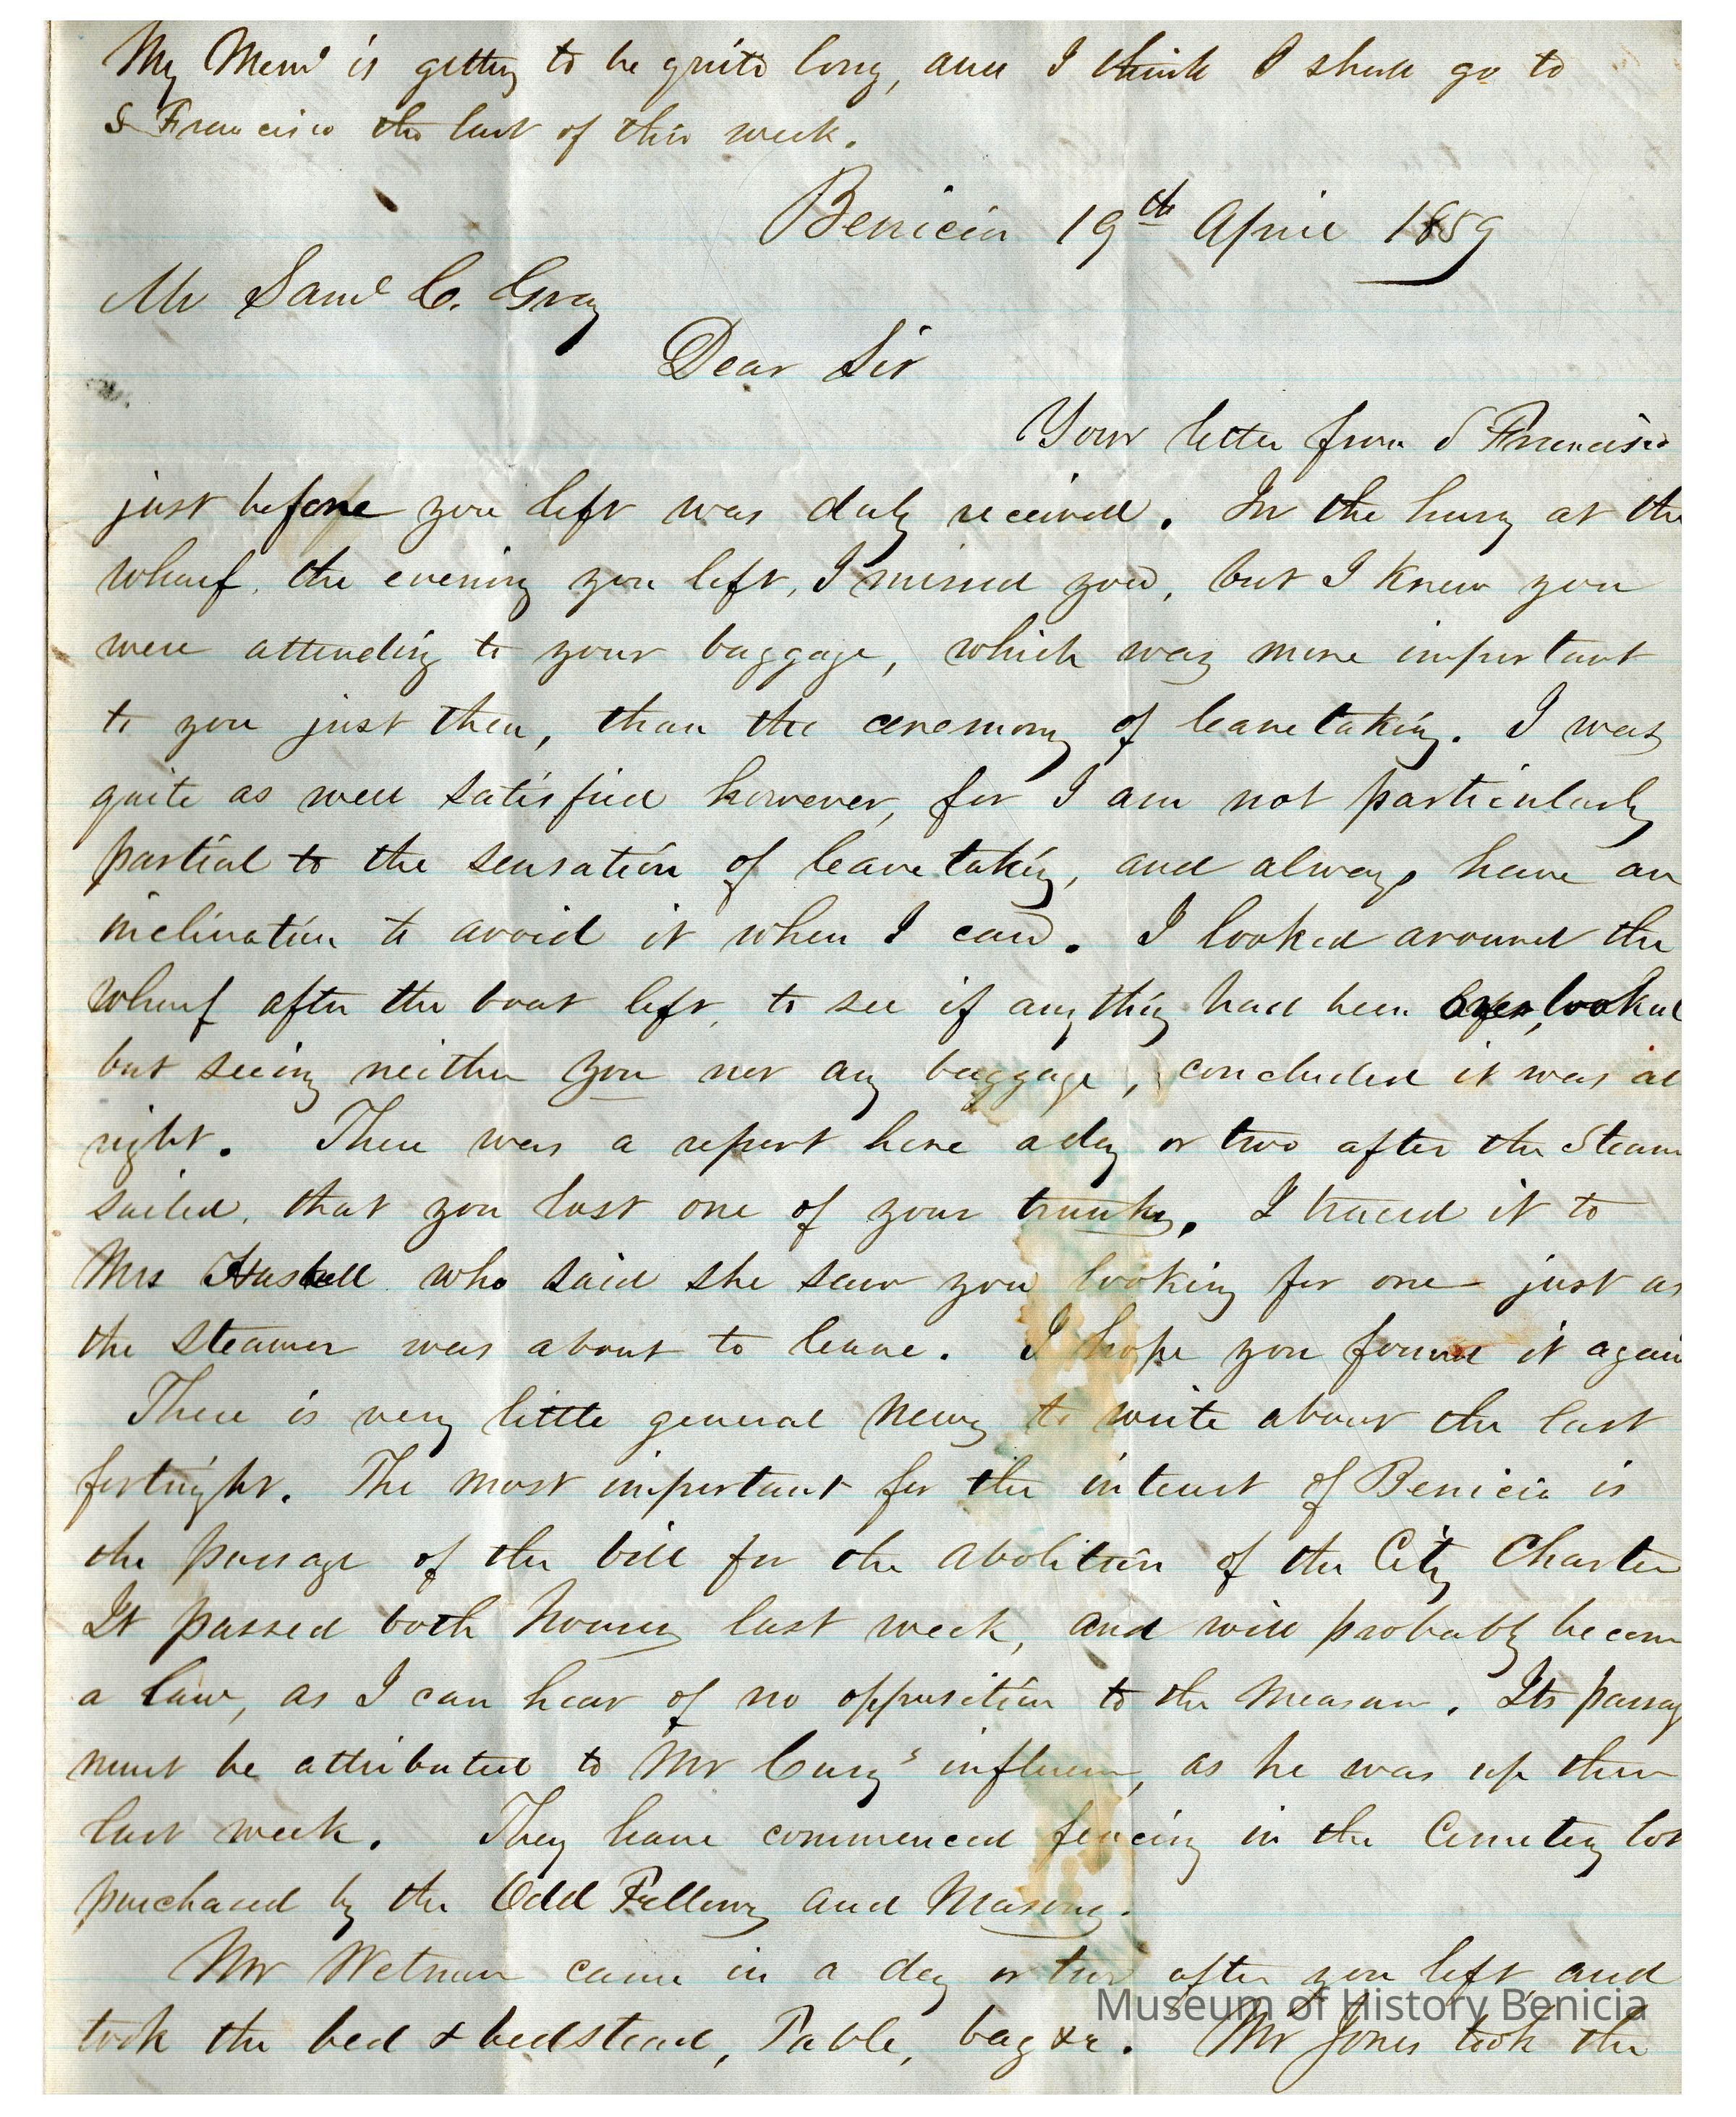 My Memo is getting to be quite long, and I think I shall go to
S Francisco the last of this week.
Benicia 19th April 1859
Mr Saml C. Gray
Dear Sir
Your letter from S Francisco
just before you left was duly received. In the hurry at the
wharf, the evening you left, I missed you, but I knew you
were attending to your baggage, which was more important
to you just then, than the ceremony of leave taking. I was
quite as well satisfied however, for I am not particularly
partial to the sensation of leave taking, and always have an
inclination to avoid it when I can. I looked around the
wharf after the boat left, to see if anything had been overlooked
but seeing neither you nor any baggage, concluded it was al
right. There was a report here a day or two after the Steam
sailed, that you lost one of your trunks. I traced it to
Mrs Haskell who said she saw you looking for one just as
the steamer was about to leave. I hope you found it again
There is very little general news to write about the last
fortnight. The most important for the interest of Benicia is
the passage of the bill for the abolition of the City Charter
It passed both houses last week, and will probably becom
a law, as I can hear of no opposition to the measure. Its passag
must be attributed to Mr Curry's influence, as he was up there
last week. They have commenced fencing in the Cemetery lot
purchased by the Odd Fellows and Masons.
Mr Wetmore came in a day or two after you left and
took the bed & bedstead, Table, bag &c. Mr Jones took the
Museum of History Benicia